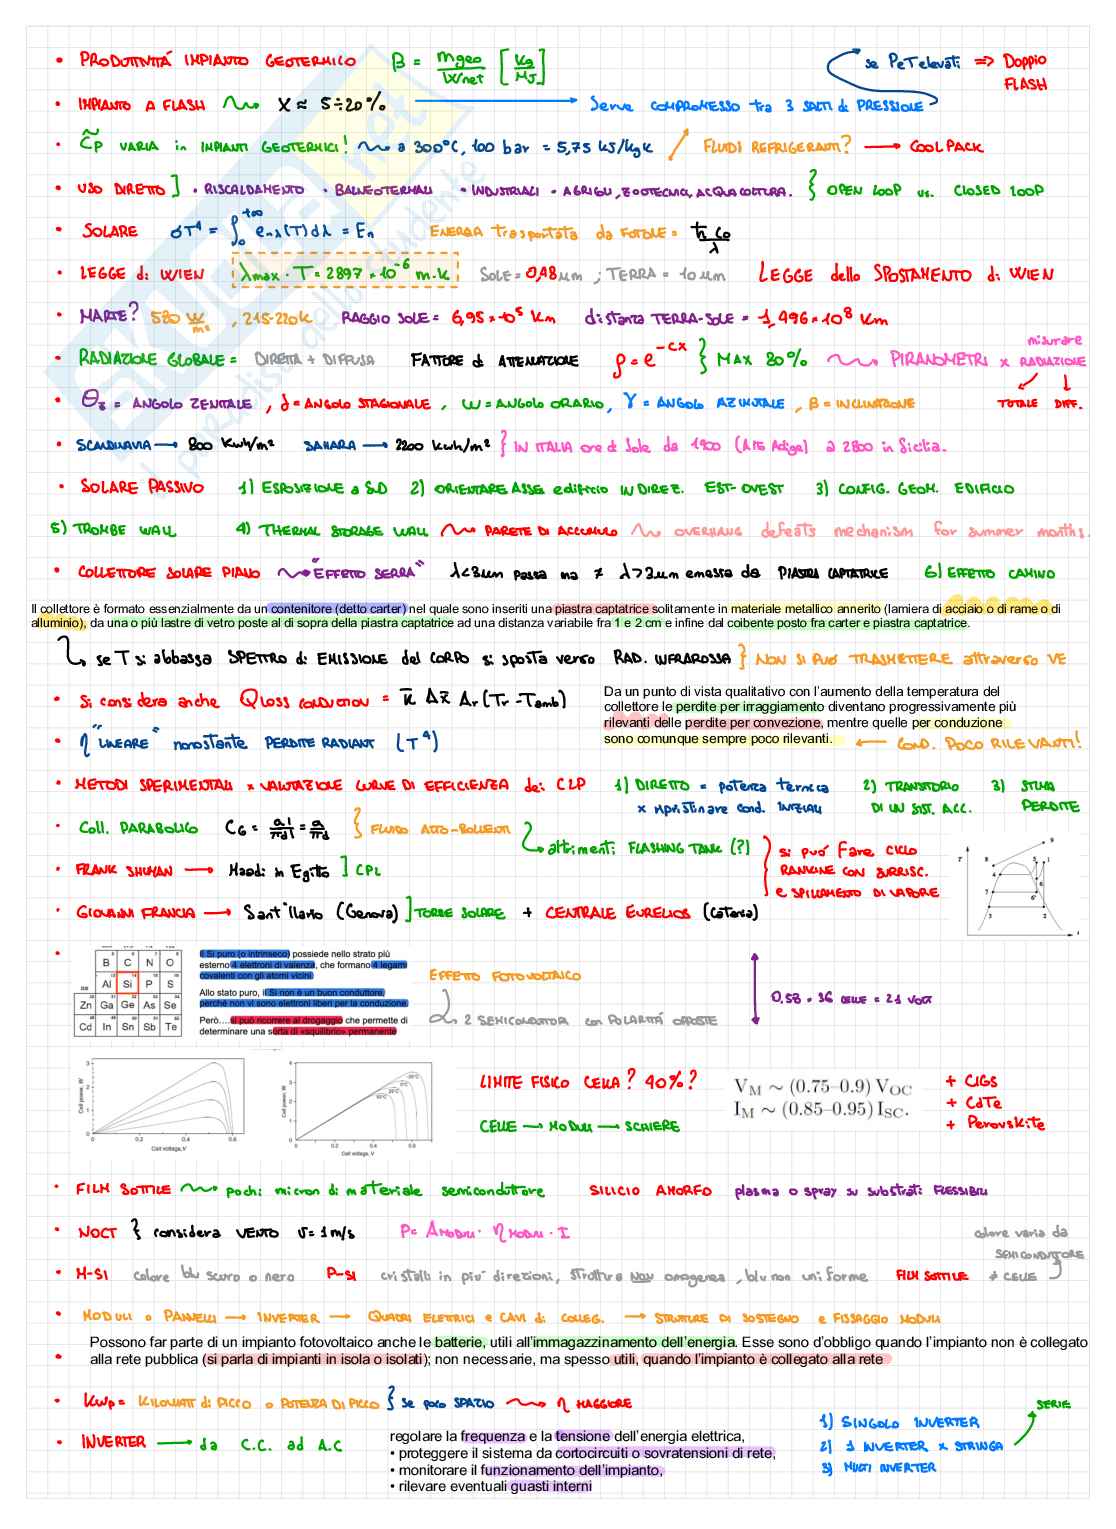 • PRODUTTIVITÁ IMPIANTO GEOTERMICO β = ṁgeo/Wnet [kg/MJ] se P e T elevati => DOPPIO FLASH
• IMPIANTO A FLASH X ≈ 5÷20% Serve COMPROMESSO tra 3 SALTI di PRESSIONE
• c̃p VARIA in IMPIANTI GEOTERMICI! a 300°C, 100 bar = 5,75 kJ/kgK FLUIDI REFRIGERANTI? → COOLPACK
• USO DIRETTO] • RISCALDAMENTO • BALNEOTERMALI • INDUSTRIALI • AGRICOLI, ZOOTECNICI, ACQUACOLTURA. { OPEN LOOP vs. CLOSED LOOP
• SOLARE σT⁴ = ∫₀^+∞ enλ(T)dλ = En ENERGIA trasportata da FOTONE = h c₀/λ
• LEGGE di WIEN λmax · T = 2897 × 10⁻⁶ m·K SOLE = 0,48 µm ; TERRA = 10 µm LEGGE dello SPOSTAMENTO di WIEN
• MARTE? 580 W/m² , 215-220K RAGGIO SOLE = 6,95 × 10⁵ Km distanza TERRA-SOLE = 1,496 × 10⁸ Km
• RADIAZIONE GLOBALE = DIRETTA + DIFFUSA FATTORE di ATTENUAZIONE ρ = e^-cx } MAX 80% PIRANOMETRI x misurare RADIAZIONE
TOTALE DIFF.
• θz = ANGOLO ZENITALE , δ = ANGOLO STAGIONALE , ω = ANGOLO ORARIO, γ = ANGOLO AZIMUTALE , β = INCLINAZIONE
• SCANDINAVIA → 800 Kwh/m² SAHARA → 2200 Kwh/m² } IN ITALIA ore di Sole da 1900 (Alto Adige) a 2800 in Sicilia.
• SOLARE PASSIVO 1) ESPOSIZIONE a SUD 2) ORIENTARE ASSE edificio IN DIREZ. EST-OVEST 3) CONFIG. GEOM. EDIFICIO
5) TROMBE WALL 4) THERMAL STORAGE WALL PARETE DI ACCUMULO OVERHANG defeats mechanism for summer months.
• COLLETTORE SOLARE PIANO "EFFETTO SERRA" λ<3µm passa ma ≠ λ>3µm emessa da PIASTRA CAPTATRICE 6) EFFETTO CAMINO
Il collettore è formato essenzialmente da un contenitore (detto carter) nel quale sono inseriti una piastra captatrice solitamente in materiale metallico annerito (lamiera di acciaio o di rame o di
alluminio), da una o più lastre di vetro poste al di sopra della piastra captatrice ad una distanza variabile fra 1 e 2 cm e infine dal coibente posto fra carter e piastra captatrice.
se T si abbassa SPETTRO di EMISSIONE del CORPO si sposta verso RAD. INFRAROSSA } NON SI PUÒ TRASMETTERE attraverso VE
• Si considera anche Q loss conduction = k̄ Δx̄ Ar (Tr - Tamb)
Da un punto di vista qualitativo con l'aumento della temperatura del
collettore le perdite per irraggiamento diventano progressivamente più
rilevanti delle perdite per convezione, mentre quelle per conduzione
sono comunque sempre poco rilevanti. ← COND. POCO RILEVANTI!
• η "LINEARE" nonostante PERDITE RADIANTI (T⁴)
• METODI SPERIMENTALI x VALUTAZIONE CURVE DI EFFICIENZA dei CLP 1) DIRETTO = potenza termica x ripristinare cond. INIZIALI 2) TRANSITORIO DI UN SIST. ACC. 3) STIMA PERDITE
• Coll. PARABOLICO CG = al/πdl = a/πd } FLUIDO AUTO-BOLLENTE
altrimenti FLASHING TANK (?) } si può fare CICLO RANKINE CON SURRISC. e SPILLAMENTO DI VAPORE
• FRANK SHUMAN → Maadi in Egitto ] CPL
• GIOVANNI FRANCIA → Sant'Ilario (Genova) ] TORRE SOLARE + CENTRALE EURELIOS (Catania)
T 8 9 5 1 4 6 7 6' 3 2 s
B C N O
Al Si P S
Zn Ga Ge As Se
Cd In Sn Sb Te
Il Si puro (o intrinseco) possiede nello strato più
esterno 4 elettroni di valenza, che formano 4 legami
covalenti con gli atomi vicini
Allo stato puro, il Si non è un buon conduttore,
perché non vi sono elettroni liberi per la conduzione.
Però....si può ricorrere al drogaggio che permette di
determinare una sorta di «squilibrio» permanente
EFFETTO FOTOVOLTAICO
2 SEMICONDUTTORI con POLARITÁ OPPOSTE
0,58 · 36 CELLE = 21 VOLT
Cell power, W 3 2 1 0 0 0.2 0.4 0.6 Cell voltage, V
Cell power, W 4 3 2 1 0 0 0.2 0.4 0.6 Cell voltage, V
LIMITE FISICO CELLA? 40%?
CELLE → MODULI → SCHIERE
V_M ∼ (0.75–0.9) V_OC
I_M ∼ (0.85–0.95) I_SC.
+ CIGS
+ CdTe
+ Perovskite
• FILM SOTTILE pochi micron di materiale semiconduttore SILICIO AMORFO plasma o spray su substrati FLESSIBILI
• NOCT { considera VENTO v = 1 m/s P = A MODULI · η MODULI · I
colore varia da SEMICONDUTTORE
• M-SI colore blu scuro o nero P-SI cristalli in più direzioni, struttura NON omogenea, blu non uniforme FILM SOTTILE ≠ CELLE
• MODULI o PANNELLI → INVERTER → QUADRI ELETTRICI e CAVI di COLLEG. → STRUTTURE DI SOSTEGNO e FISSAGGIO MODULI
Possono far parte di un impianto fotovoltaico anche le batterie, utili all'immagazzinamento dell'energia. Esse sono d'obbligo quando l'impianto non è collegato
• alla rete pubblica (si parla di impianti in isola o isolati); non necessarie, ma spesso utili, quando l'impianto è collegato alla rete
• Kwp = KILOWATT di PICCO o POTENZA DI PICCO } se poco SPAZIO η MAGGIORE
• INVERTER → da C.C. ad A.C
regolare la frequenza e la tensione dell'energia elettrica,
• proteggere il sistema da cortocircuiti o sovratensioni di rete,
• monitorare il funzionamento dell'impianto,
• rilevare eventuali guasti interni
1) SINGOLO INVERTER
2) 1 INVERTER x STRINGA SERIE
3) MULTI INVERTER